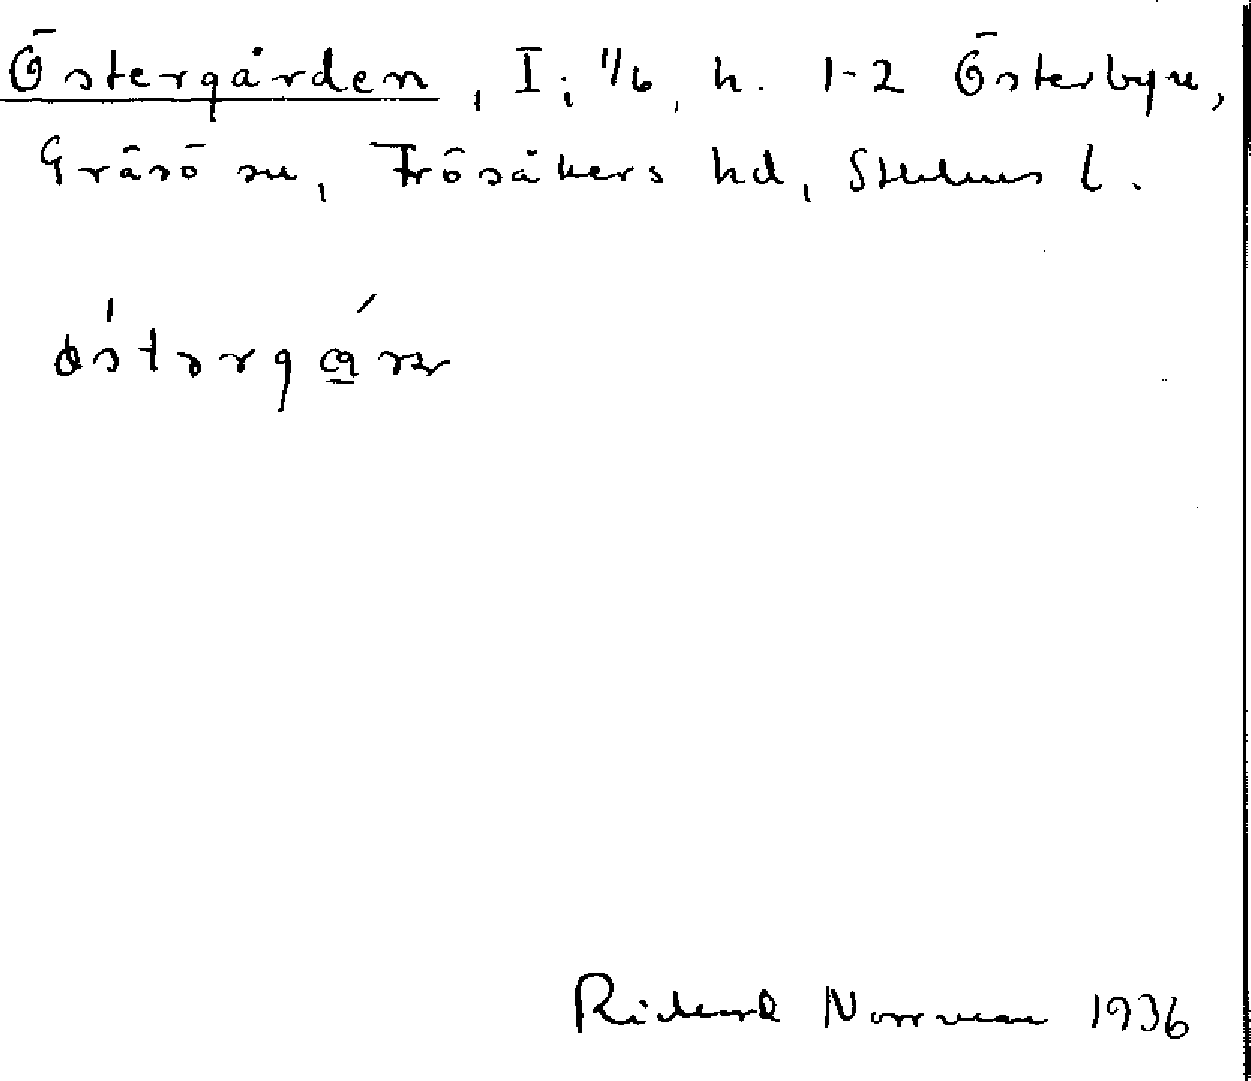 Östergården, I; 1/6, h. 1-2 Österbyn,
Gräsö sn, Frösåkers hd, Sthlms l.
Rickard Norrman 1936